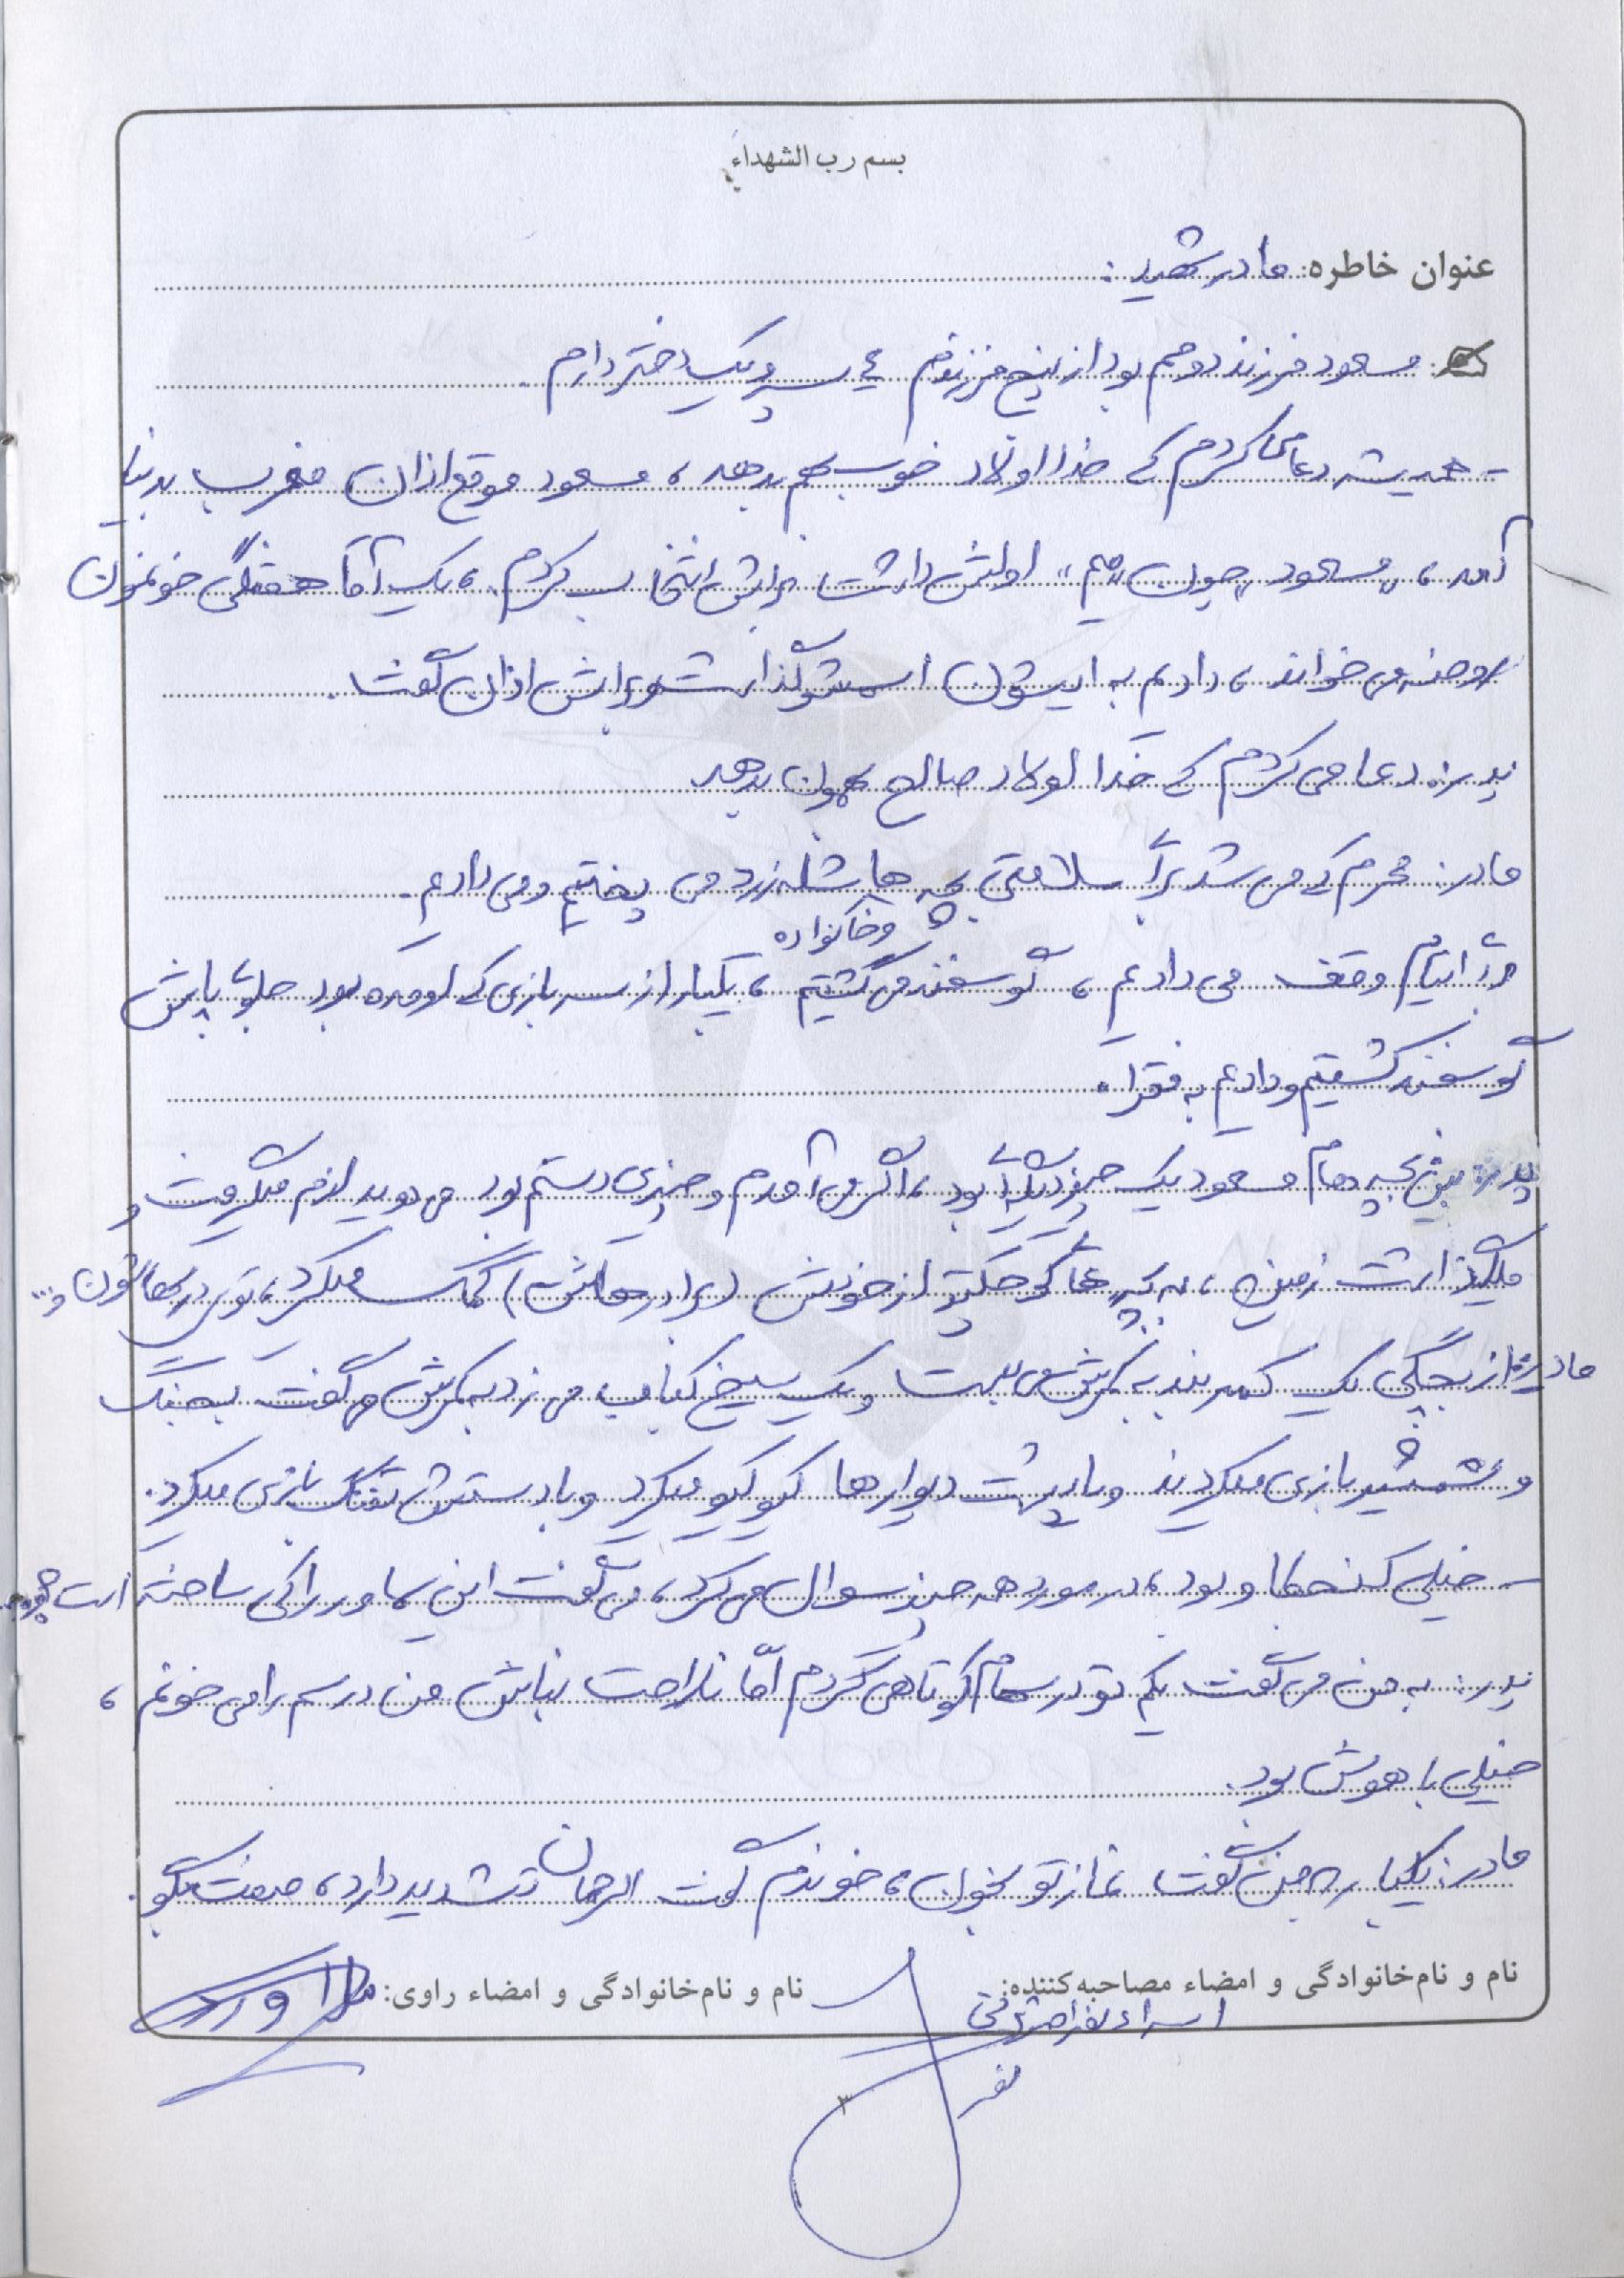 بسم رب الشهداء
عنوان خاطره: مادر شهید:
مسعود فرزند دومم بود از پنج فرزندم ۴ پسر و یک دختر دارم.
- همیشه دعا می‌کردم که خدا اولاد خوب بهم بدهد، مسعود موقع اذان مغرب بدنیا
آمد، "مسعود" چون "میم" اولش داشت برایش انتخاب کردم، یک آقا هفتگی خونمون
روضه می‌خواند، دادیم به ایشون اسمشو گذاشت و برایش اذان گفت.
پدر: دعا می کردم که خدا اولاد صالح بهمون بدهد
مادر: محرم که می شد برای سلامتی بچه ها شله زرد می پختیم و می دادیم.
و خانواده
در ایام وقف می دادیم، گوسفند می کشتیم، یکبار از سربازی که اومده بود جلوی پاش
گوسفند کشتیم و دادیم به فقرا.
پدر: بین بچه هام مسعود یک چیز دیگه‌ای بود، اگر می آمدم و چیزی دستم بود می دوید ازم میگرفت و
میگذاشت زمین، به بچه های کوچکتر از خودش (برادرهاش) کمک میکرد، توی درسهاشون و...
مادر: از بچگی یک کمربند به کمرش می بست و یک سیخ کباب می زد به کمرش می گفت بجنگ
و شمشیر بازی میکردند و یا پشت دیوارها کیو کیو میکرد و با دستش تفنگ بازی میکرد.
- خیلی کنجکاو بود، در مورد همه چیز سوال می کرد، می گفت این سماور را کی ساخته است
پدر: به من می گفت یکم تو درسهام کوتاهی کردم امّا ناراحت نباش من درسم را می خونم،
خیلی باهوش بود.
مادر: یکبار به من گفت نماز تو بخون، خوندم گفت الرحمان تشدید دارد، سفت بگو.
نام و نام‌خانوادگی و امضاء مصاحبه‌کننده:
نام و نام‌خانوادگی و امضاء راوی:
اسراء
۳